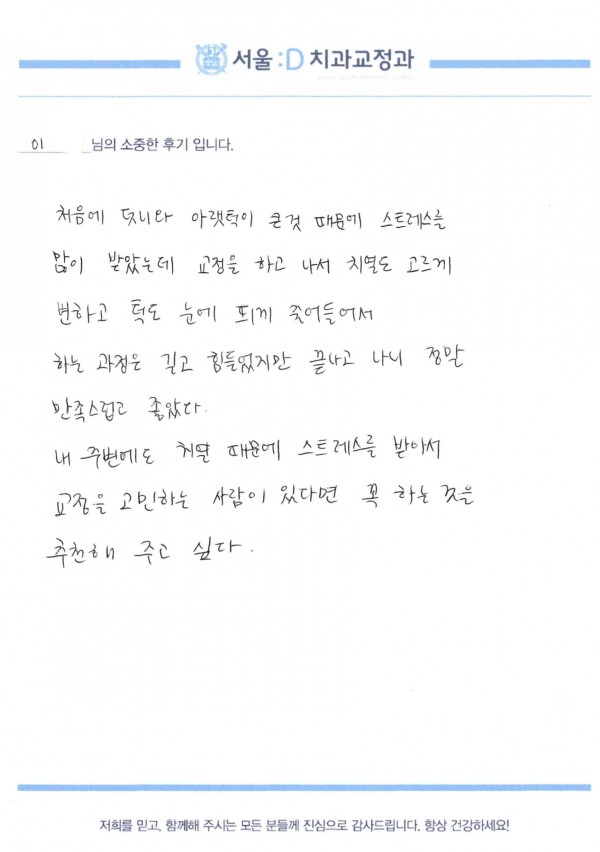 서울:D 치과교정과
이 님의 소중한 후기 입니다.
처음에 덧니와 아랫턱이 큰것 때문에 스트레스를
많이 받았는데 교정을 하고 나서 치열도 고르게
변하고 턱도 눈에 띄게 줄어들어서
하는 과정은 길고 힘들었지만 끝나고 나니 정말
만족스럽고 좋았다.
내 주변에도 치열 때문에 스트레스를 받아서
교정을 고민하는 사람이 있다면 꼭 하는 것을
추천해 주고 싶다.
저희를 믿고, 함께해 주시는 모든 분들께 진심으로 감사드립니다. 항상 건강하세요!